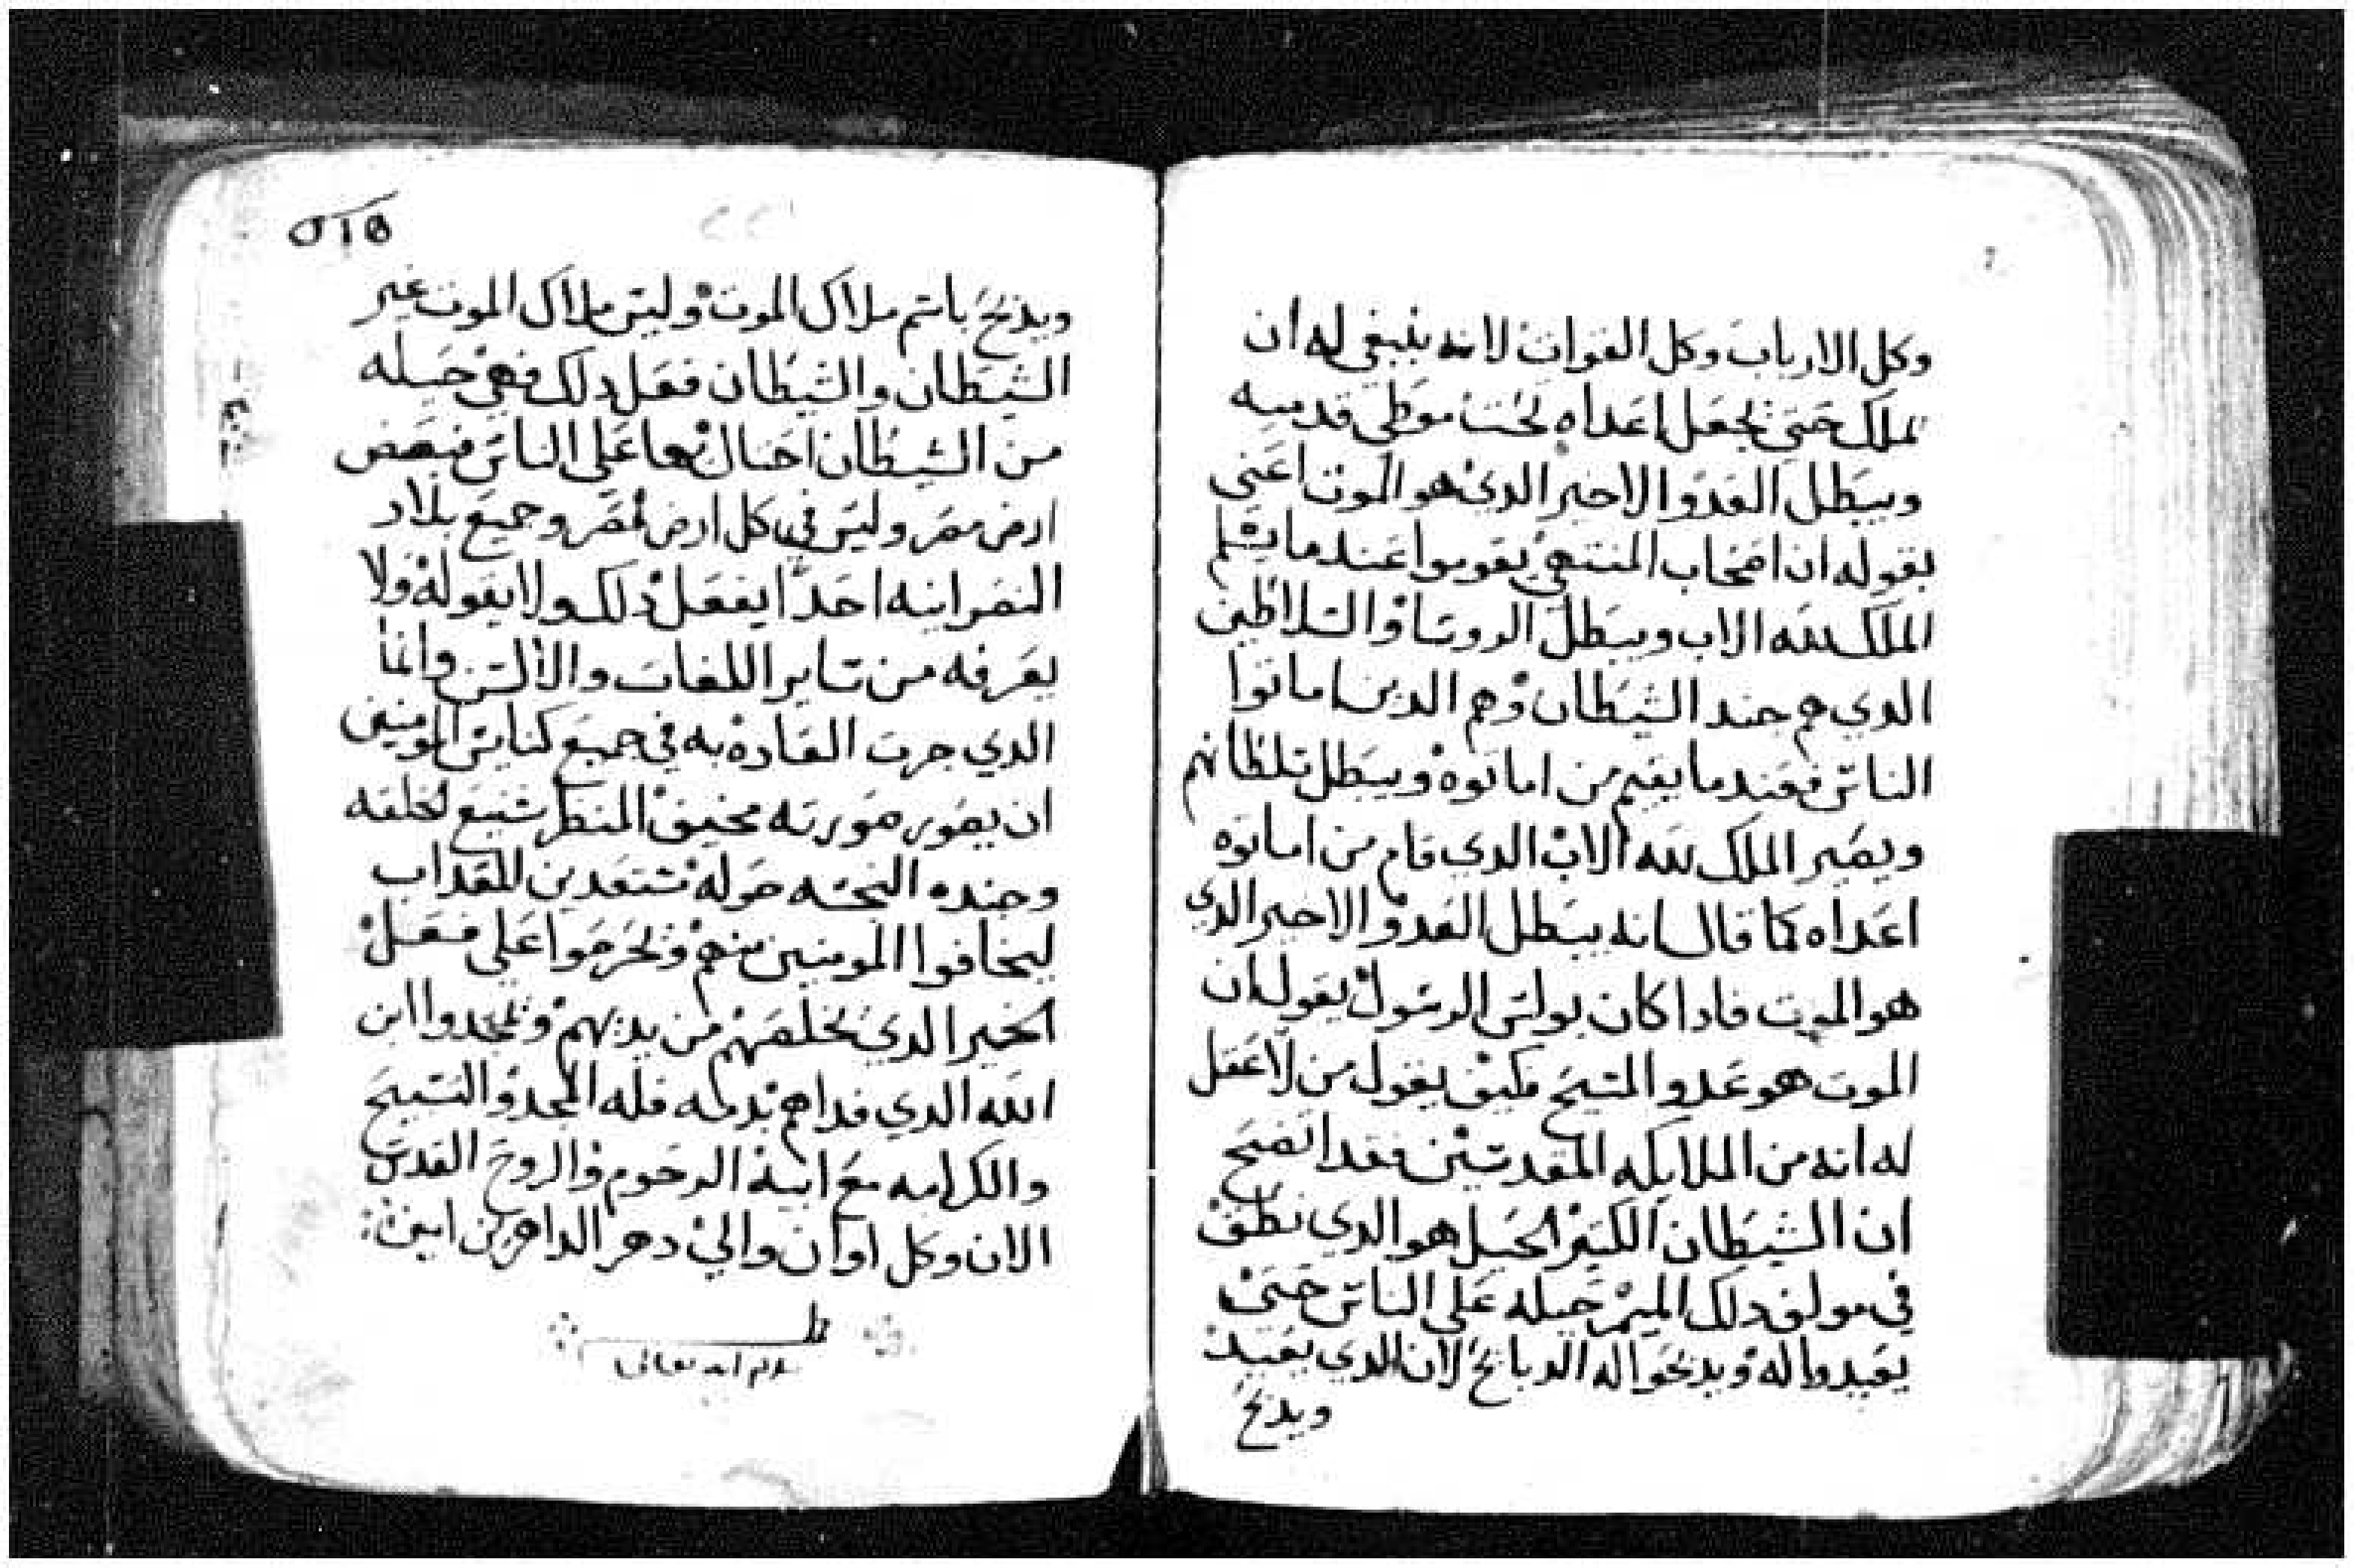 وكل الارباب وكل القوات لانه ينبغي له ان
يملك حتي يجعل اعداه تحت موطي قدميه
ويبطل العدو الاخير الدي هو الموت اعني
بقوله ان اصحاب المنتهي يقوموا عندما يسلم
الملك لله الاب ويبطل الروسا والسلاطين
الدي هم جند الشيطان وهم الدين اماتوا
الناس فعندما يقيم من اماتوه ويبطل سلطانهم
ويصير الملك لله الاب الدي قام من اماتوه
اعداه كما قال انه يبطل العدو الاخير الدي
هو الموت فادا كان بولس الرسول يقول ان
الموت هو عدو المسيح فكيف يقول من لا عقل
له انه من الملايكه المقدسين فقد اتضح
ان الشيطان الكبير الحيل هو الدي نطق
في مولف دلك الميمر حيله علي الناس حتي
يعيدوا له ويدبحوا له الدبايح لان الدي يعيد
ويدبح
ويدبح باسم ملاك الموت وليس ملاك الموت غير
الشيطان والشيطان فعل دلك فهي حيله
من الشيطان احتال بها علي الناس فبعض
ارض مصر وليس في كل ارض مصر وجميع بلاد
النصرانيه احدا يفعل دلك ولا يقوله ولا
يعرفه من ساير اللغات والالسن وانما
الدي جرت العاده به في جميع كنايس المومنين
ان يصور صورته مخيف المنظر شنيع الخلقه
وجنده النجسه حوله مستعدين للعداب
ليخافوا المومنين منهم ويحرصوا علي فعل
الخير الدي يخلصهم من يديهم ويمجدوا ابن
الله الدي فداهم بدمه فله المجد والتسبيح
والكرامه مع ابيه الرحوم والروح القدس
الان وكل اوان والي دهر الداهرين امين